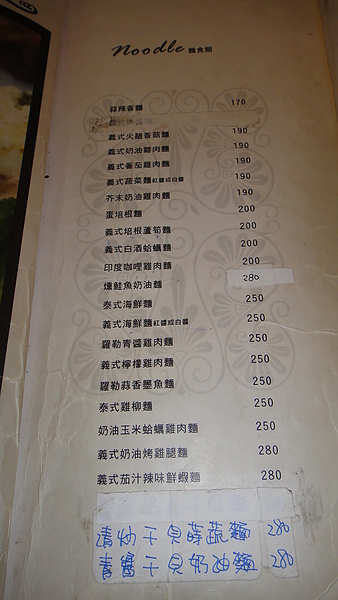 Noodle 麵食類
蒜辣香麵 170
義式火腿香菇麵 190
義式奶油雞肉麵 190
義式番茄雞肉麵 190
義式蔬菜麵紅醬或白醬 190
芥末奶油雞肉麵 190
蛋培根麵 200
義式培根蘆筍麵 200
義式白酒蛤蠣麵 200
印度咖哩雞肉麵 200
燻鮭魚奶油麵 280
泰式海鮮麵 250
義式海鮮麵紅醬或白醬 250
羅勒青醬雞肉麵 250
義式檸檬雞肉麵 250
羅勒蒜香墨魚麵 250
泰式雞柳麵 250
奶油玉米蛤蠣雞肉麵 250
義式奶油烤雞腿麵 280
義式茄汁辣味鮮蝦麵 280
清炒干貝時蔬麵 280
青醬干貝奶油麵 280